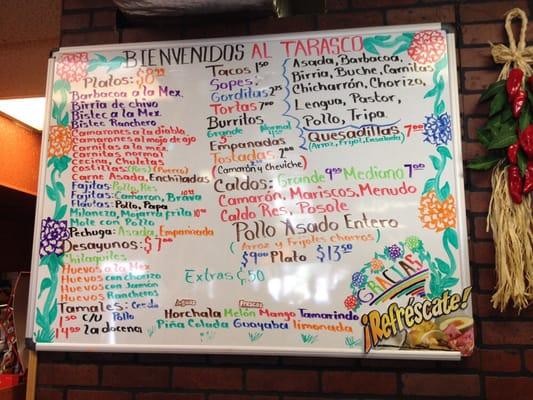 BIENVENIDOS AL TARASCO
Platos: $8.99
Barbacoa a la Mex
Birria de chivo
Bistec a la Mex
Bistec Ranchero
Camarones a la diabla
Camarones al mojo de ajo
Carnitas a la mex
Carnitas normal
Cecina, Chuletas
Costillas (Res)
Carne Asada, Enchiladas
Fajitas: Pollo, Res
Fajitas: Camaron, Brava
Flautas: Pollo, Papa
Milaneza, Mojarra frita
Mole con Pollo
Pechuga: Asada, Empanizada
Desayunos: $7.00
Chilaquiles
Huevos a la Mex
Huevos con chorizo
Huevos con Jamón
Huevos Rancheros
Tamales: Cerdo
1.50 c/u Pollo
14.00 la docena
Tacos
Sopes
Gorditas
Tortas 7.00
Burritos
Grande Normal
Empanadas
Tostadas
(Camarón y Cheviche)
Asada, Barbacoa,
Birria, Buche, Carnitas
Chicharrón, Chorizo,
Lengua, Pastor,
Pollo, Tripa
Quesadillas 7.00
(Arroz, Frijol, Ensalada)
Caldos: Grande 9.00 Mediano 7.00
Camarón, Mariscos, Menudo
Caldo Res, Posole
Pollo Asado Entero
(Arroz y Frijoles Charros)
$9.00 Plato $13.50
Extras .50
Aguas Frescas
Horchata Melón Mango Tamarindo
Piña Colada Guayaba limonada
GRACIAS
¡Refréscate!